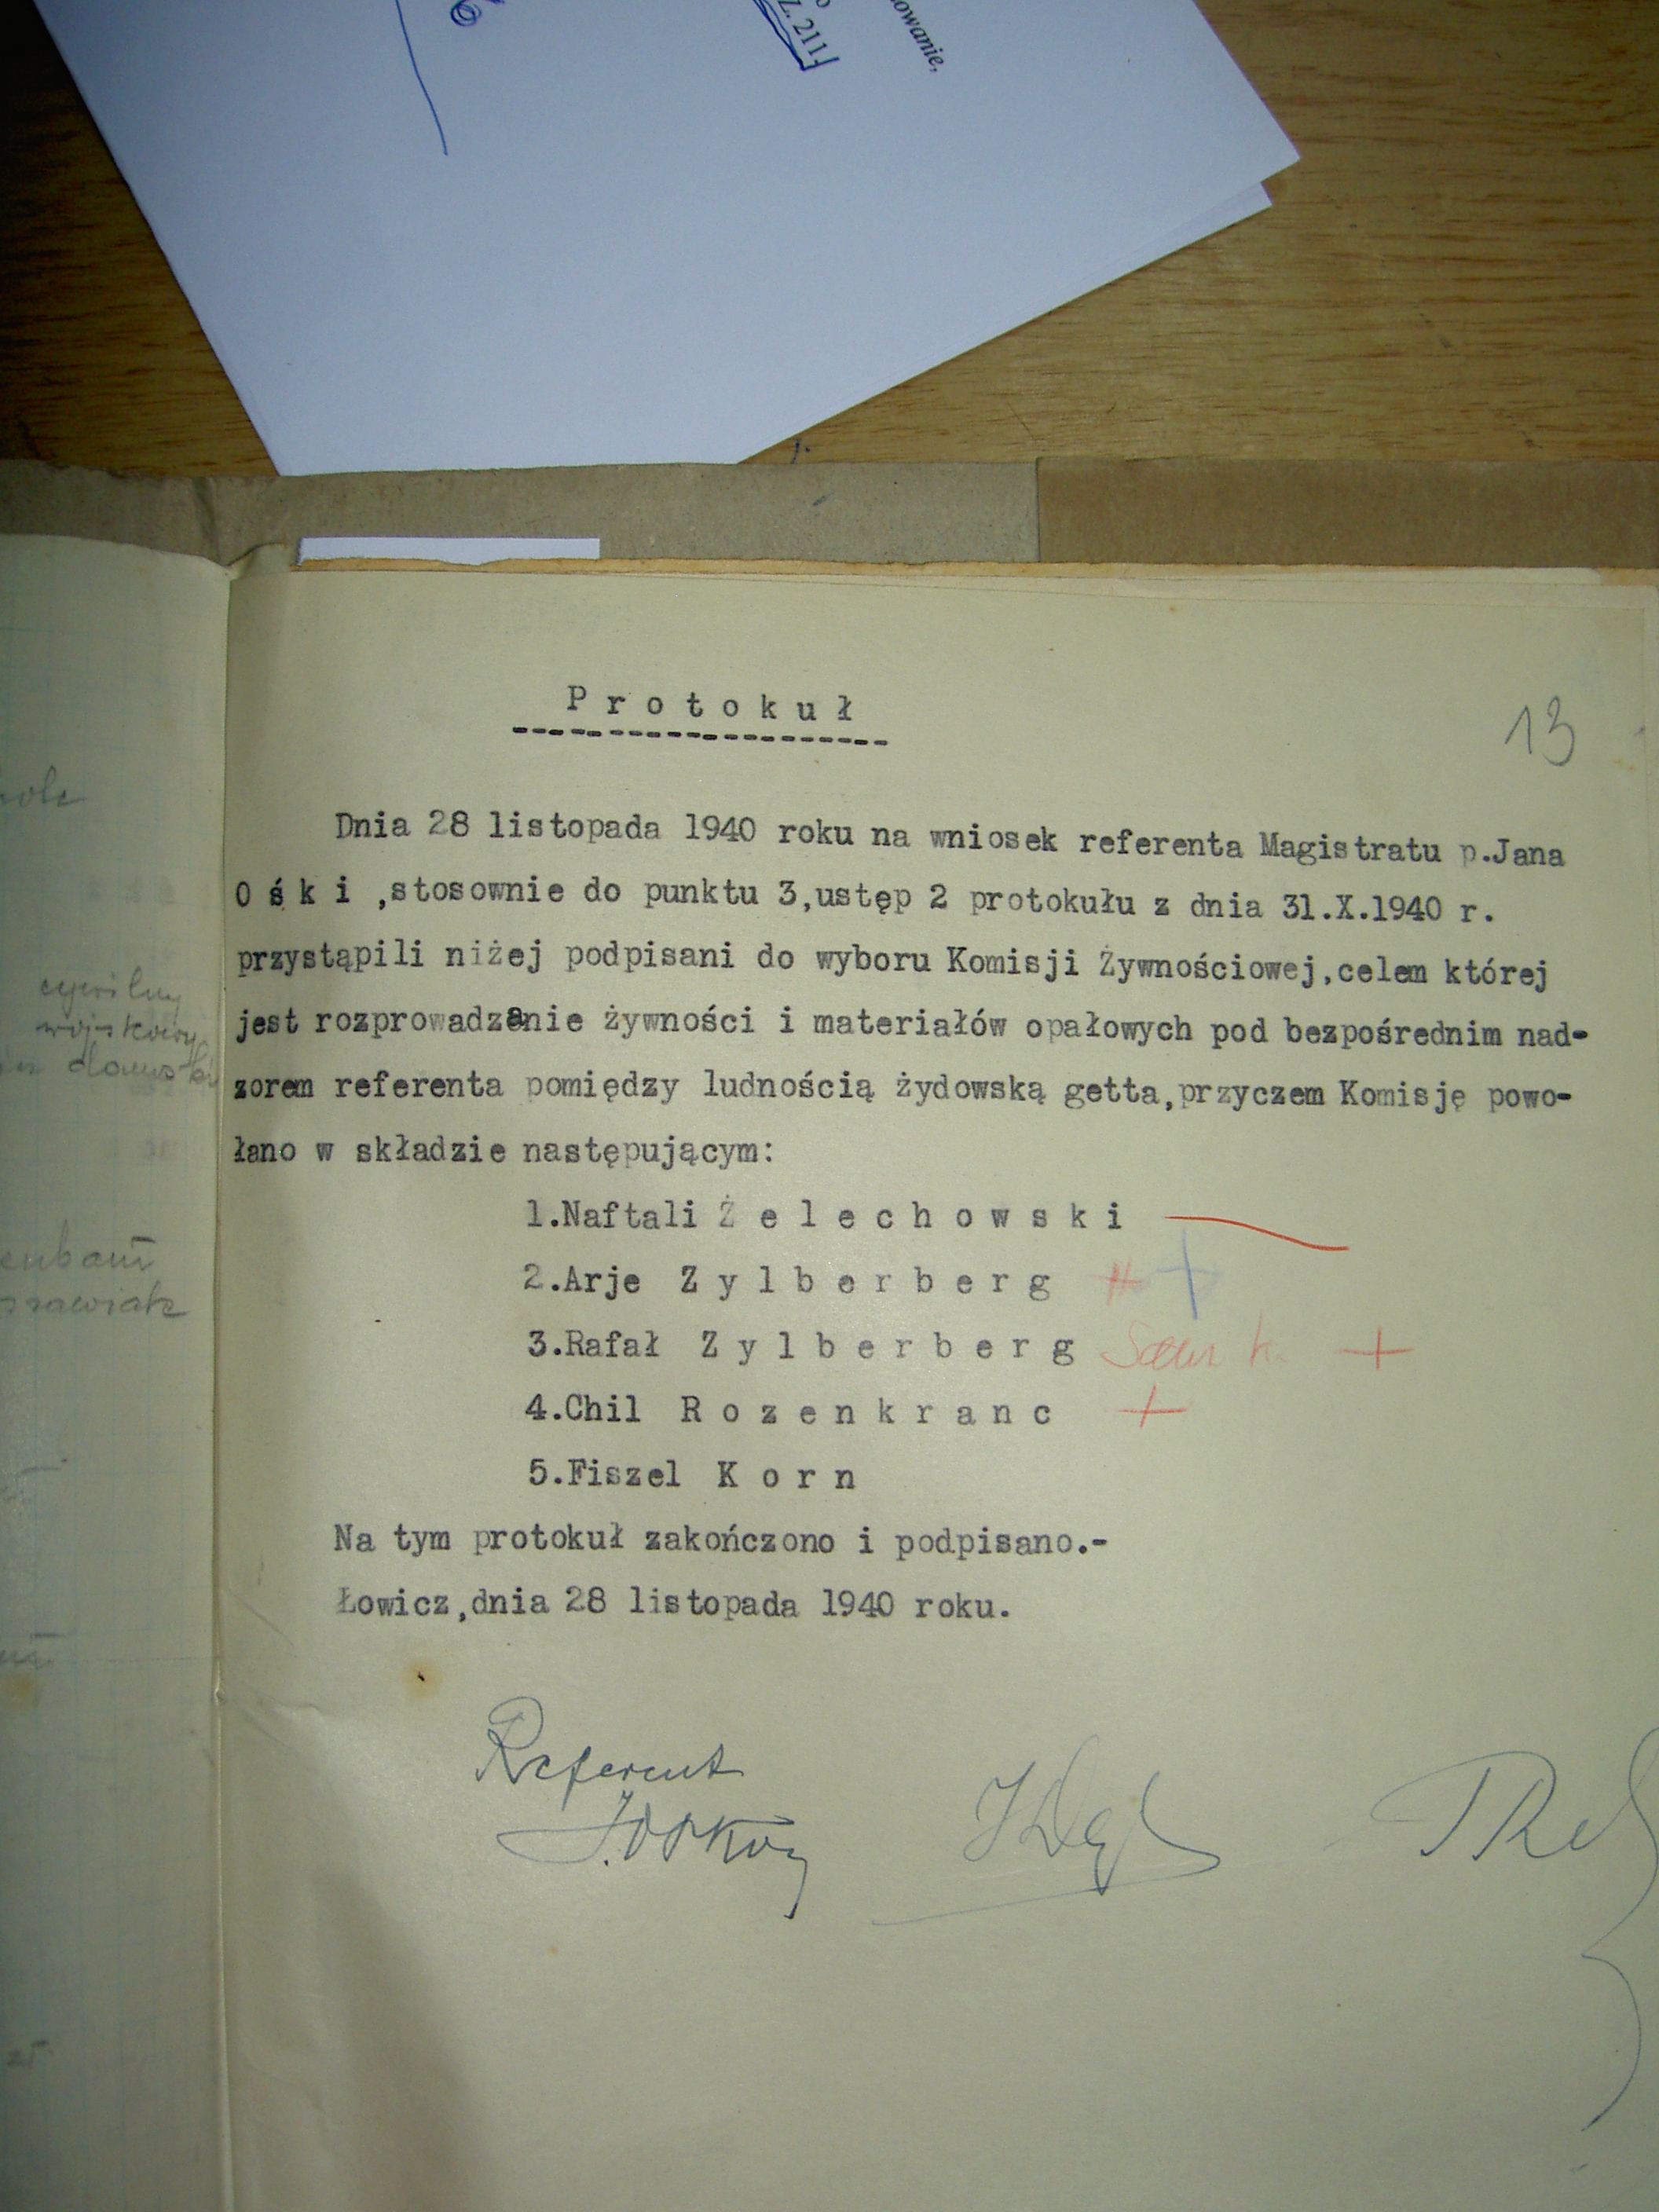 Z. 211
owanie,
P r o t o k u ł
13
Dnia 28 listopada 1940 roku na wniosek referenta Magistratu p.Jana
O ś k i ,stosownie do punktu 3,ustęp 2 protokułu z dnia 31.X.1940 r.
przystąpili niżej podpisani do wyboru Komisji Żywnościowej,celem której
jest rozprowadzanie żywności i materiałów opałowych pod bezpośrednim nad-
zorem referenta pomiędzy ludnością żydowską getta,przyczem Komisję powo-
łano w składzie następującym:
1.Naftali Ż e l e c h o w s k i
2.Arje Z y l b e r b e r g
3.Rafał Z y l b e r b e r g
4.Chil R o z e n k r a n c
5.Fiszel K o r n
Na tym protokuł zakończono i podpisano.-
Łowicz,dnia 28 listopada 1940 roku.
Referent
cywilny
wojskowy